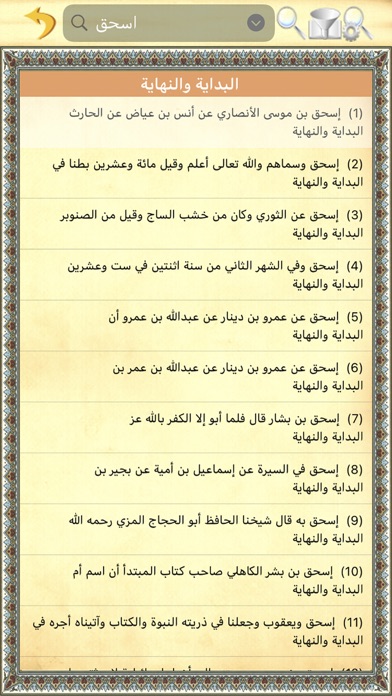 اسحق
البداية والنهاية
(1) إسحق بن موسى الأنصاري عن أنس بن عياض عن الحارث
البداية والنهاية
(2) إسحق وسماهم والله تعالى أعلم وقيل مائة وعشرين بطنا في
البداية والنهاية
(3) إسحق عن الثوري وكان من خشب الساج وقيل من الصنوبر
البداية والنهاية
(4) إسحق وفي الشهر الثاني من سنة اثنتين في ست وعشرين
البداية والنهاية
(5) إسحق عن عمرو بن دينار عن عبدالله بن عمرو أن
البداية والنهاية
(6) إسحق عن عمرو بن دينار عن عبدالله بن عمر بن
البداية والنهاية
(7) إسحق بن بشار قال فلما أبو إلا الكفر بالله عز
البداية والنهاية
(8) إسحق في السيرة عن إسماعيل بن أمية عن بجير بن
البداية والنهاية
(9) إسحق به قال شيخنا الحافظ أبو الحجاج المزي رحمه الله
البداية والنهاية
(10) إسحق بن بشر الكاهلي صاحب كتاب المبتدأ أن اسم أم
البداية والنهاية
(11) إسحق ويعقوب وجعلنا في ذريته النبوة والكتاب وآتيناه أجره في
البداية والنهاية